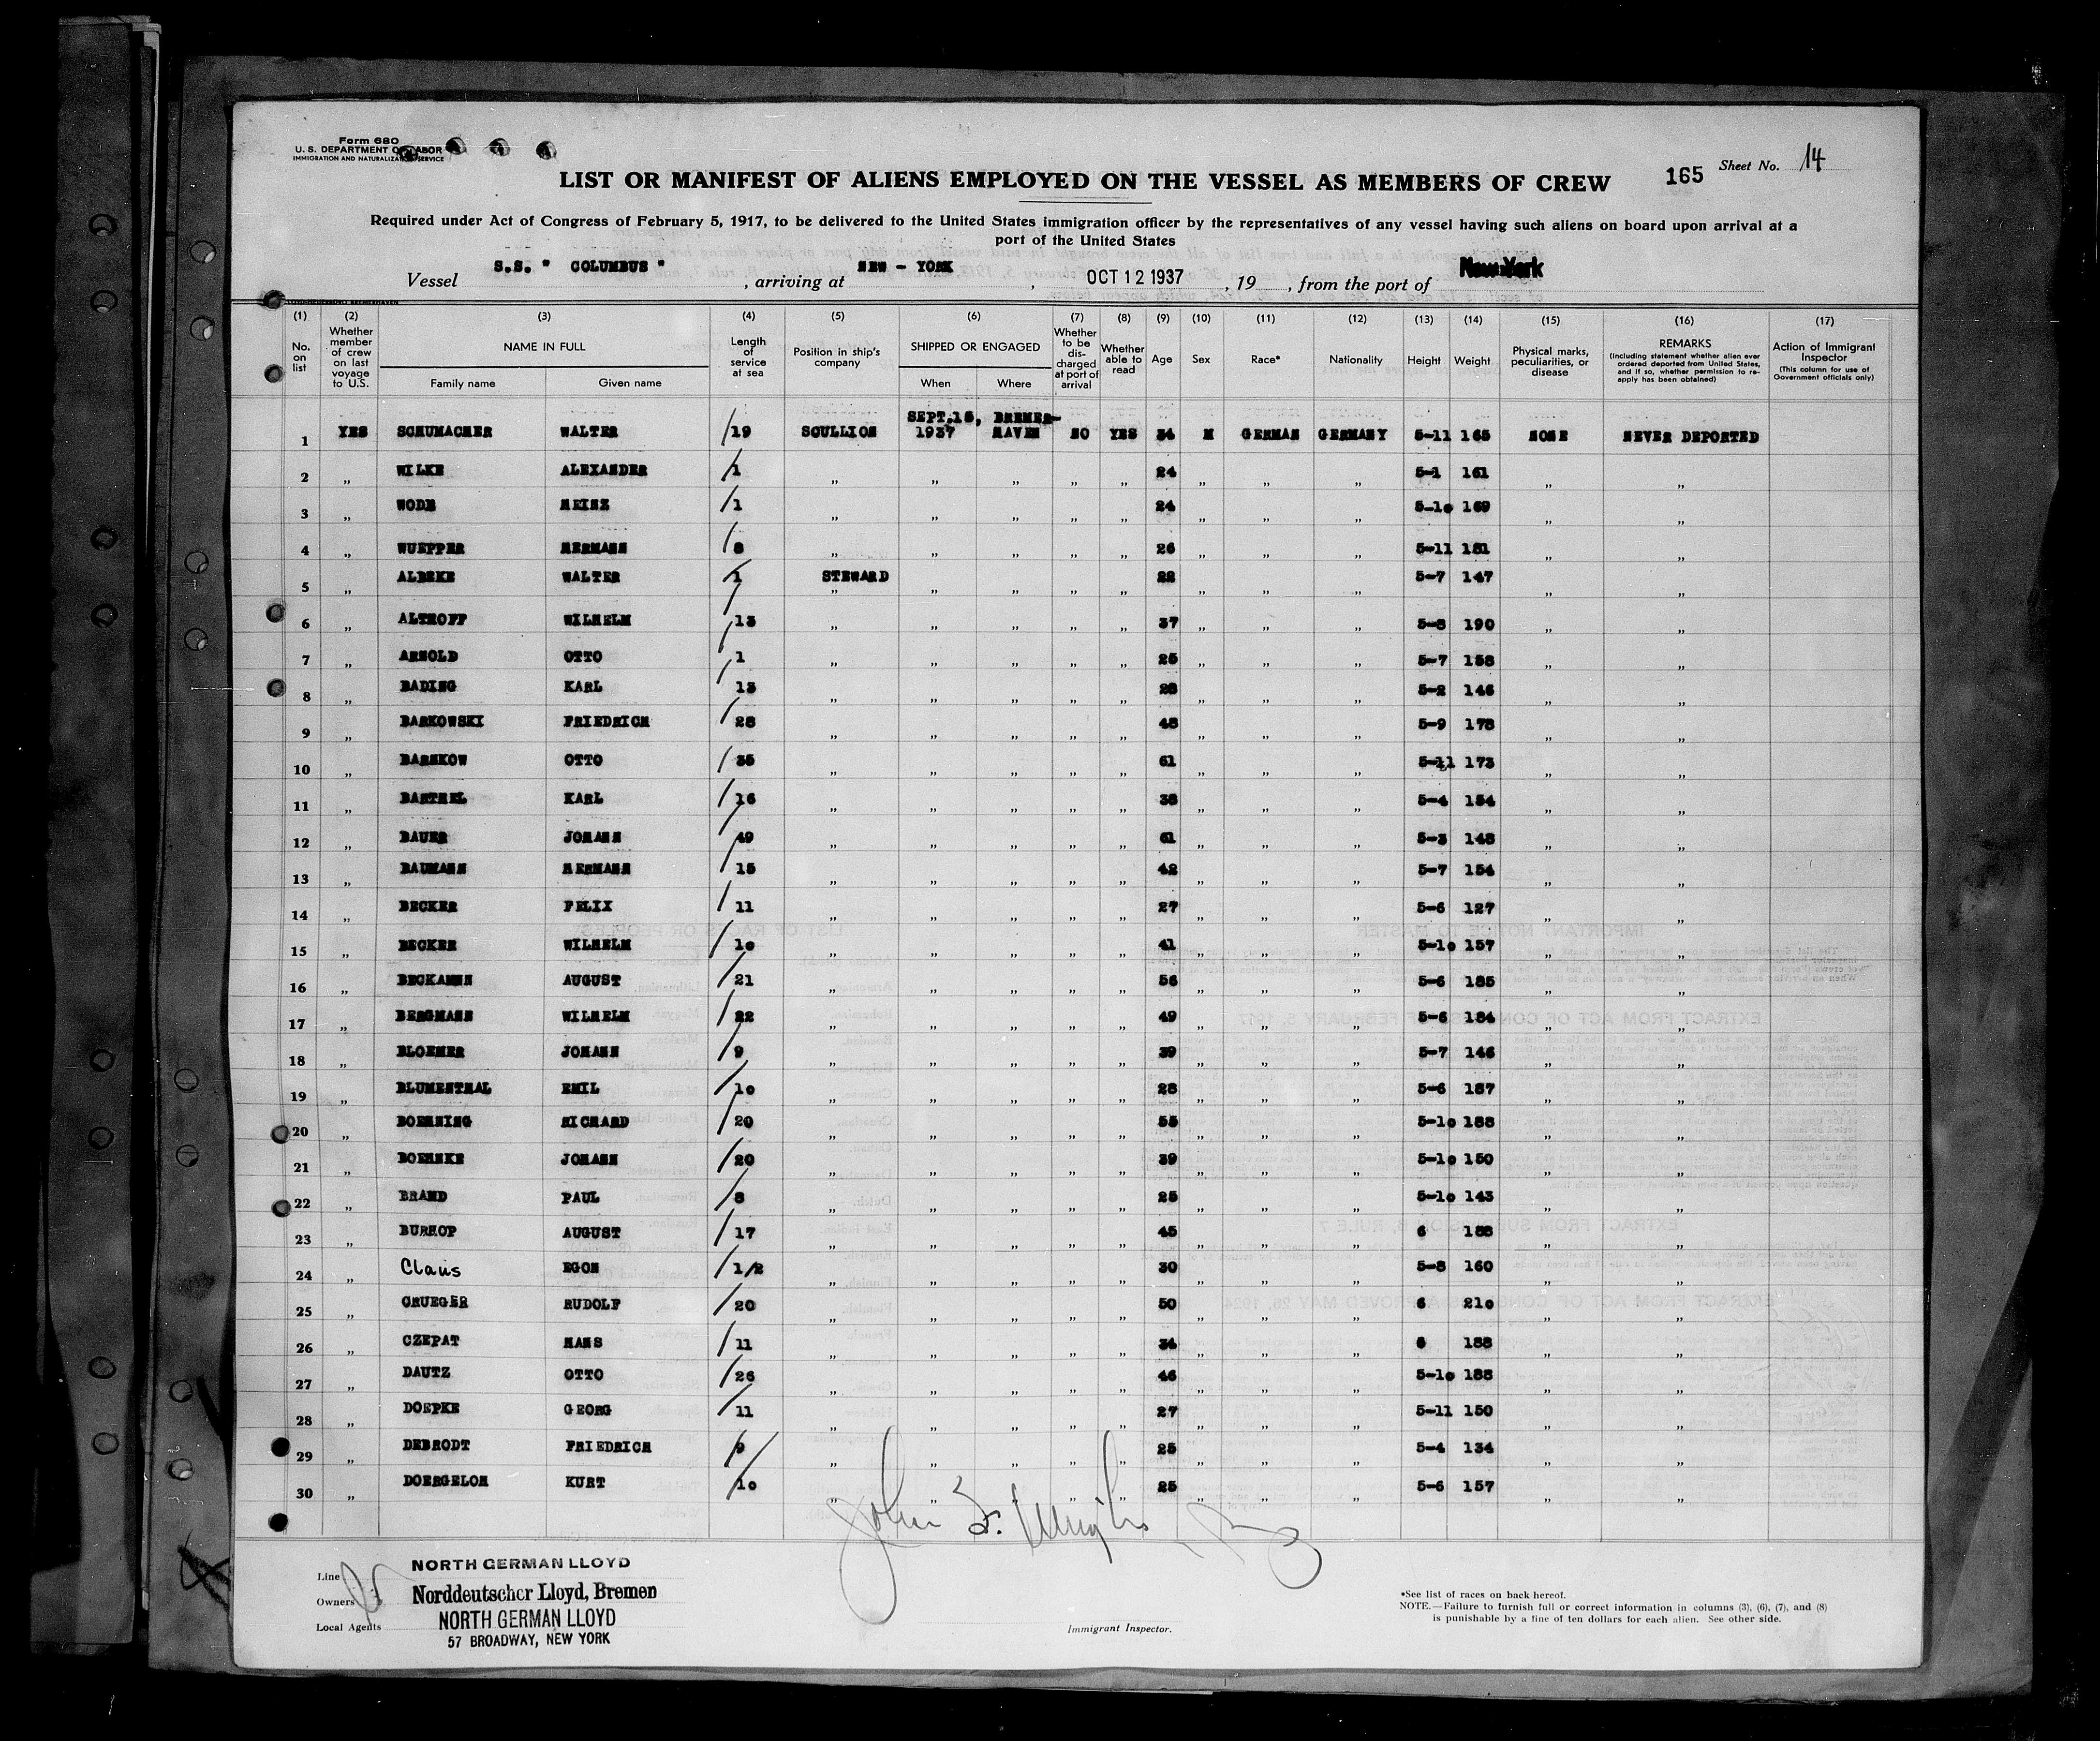 Form 680
U. S. DEPARTMENT OF LABOR
IMMIGRATION AND NATURALIZATION SERVICE
165 Sheet No. 14
LIST OR MANIFEST OF ALIENS EMPLOYED ON THE VESSEL AS MEMBERS OF CREW
Required under Act of Congress of February 5, 1917, to be delivered to the United States immigration officer by the representatives of any vessel having such aliens on board upon arrival at a
port of the United States
Vessel S.S. " COLUMBUS " , arriving at NEW - YORK , OCT 12 1937 , 19 , from the port of New York
(1) (2) (3) (4) (5) (6) (7) (8) (9) (10) (11) (12) (13) (14) (15) (16) (17)
No. on list Whether member of crew on last voyage to U.S. NAME IN FULL Family name Given name Length of service at sea Position in ship's company SHIPPED OR ENGAGED When Where Whether to be discharged at port of arrival Whether able to read Age Sex Race* Nationality Height Weight Physical marks, peculiarities, or disease REMARKS (Including statement whether alien ever ordered deported from United States, and if so, whether permission to reapply has been obtained) Action of Immigrant Inspector (This column for use of Government officials only)
1 YES SCHUMACHER WALTER /19 SCULLION SEPT.15, 1937 BREMER-HAVEN NO YES 34 M GERMAN GERMANY 5-11 165 NONE NEVER DEPORTED
2 " WILKE ALEXANDER /1 " " " " " 24 " " " 5-1 161 " "
3 " WODE HEINZ /1 " " " " " 24 " " " 5-10 169 " "
4 " WUEPPER HERMANN /8 " " " " " 26 " " " 5-11 181 " "
5 " ALBEKE WALTER /1 STEWARD " " " " " 22 " " " 5-7 147 " "
6 " ALTHOFF WILHELM /13 " " " " " 37 " " " 5-8 190 " "
7 " ARNOLD OTTO /1 " " " " " 25 " " " 5-7 158 " "
8 " BADING KARL /13 " " " " " 28 " " " 5-2 146 " "
9 " BARKOWSKI FRIEDRICH /28 " " " " " 48 " " " 5-9 178 " "
10 " BARNKOW OTTO /35 " " " " " 61 " " " 5-11 173 " "
11 " BARTHEL KARL /16 " " " " " 38 " " " 5-4 154 " "
12 " BAUER JOHANN /49 " " " " " 61 " " " 5-3 148 " "
13 " BAUMANN HERMANN /15 " " " " " 42 " " " 5-7 154 " "
14 " BECKER FELIX /11 " " " " " 27 " " " 5-6 127 " "
15 " BECKER WILHELM /10 " " " " " 41 " " " 5-10 157 " "
16 " BECKAMNN AUGUST /21 " " " " " 56 " " " 5-6 185 " "
17 " BERGMANN WILHELM /22 " " " " " 49 " " " 5-6 184 " "
18 " BLOEMER JOHANN /9 " " " " " 39 " " " 5-7 146 " "
19 " BLUMENTHAL EMIL /10 " " " " " 28 " " " 5-6 187 " "
20 " BOENNING RICHARD /20 " " " " " 55 " " " 5-10 188 " "
21 " BOEHNKE JOHANN /20 " " " " " 39 " " " 5-10 150 " "
22 " BRAND PAUL /8 " " " " " 25 " " " 5-10 143 " "
23 " BURHOP AUGUST /17 " " " " " 45 " " " 6 188 " "
24 " Claus EGON /1/2 " " " " " 30 " " " 5-8 160 " "
25 " CRUEGER RUDOLF /20 " " " " " 50 " " " 6 210 " "
26 " CZEPAT HANS /11 " " " " " 34 " " " 6 188 " "
27 " DAUTZ OTTO /26 " " " " " 46 " " " 5-10 188 " "
28 " DOEPKE GEORG /11 " " " " " 27 " " " 5-11 150 " "
29 " DEBRODT FRIEDRICH /9 " " " " " 25 " " " 5-4 134 " "
30 " DOERGELOH KURT /10 " " " " " 25 " " " 5-6 157 " "
Line NORTH GERMAN LLOYD
Owners Norddeutscher Lloyd, Bremen
Local Agents NORTH GERMAN LLOYD
57 BROADWAY, NEW YORK
Immigrant Inspector.
*See list of races on back hereof.
NOTE.—Failure to furnish full or correct information in columns (3), (6), (7), and (8)
is punishable by a fine of ten dollars for each alien. See other side.